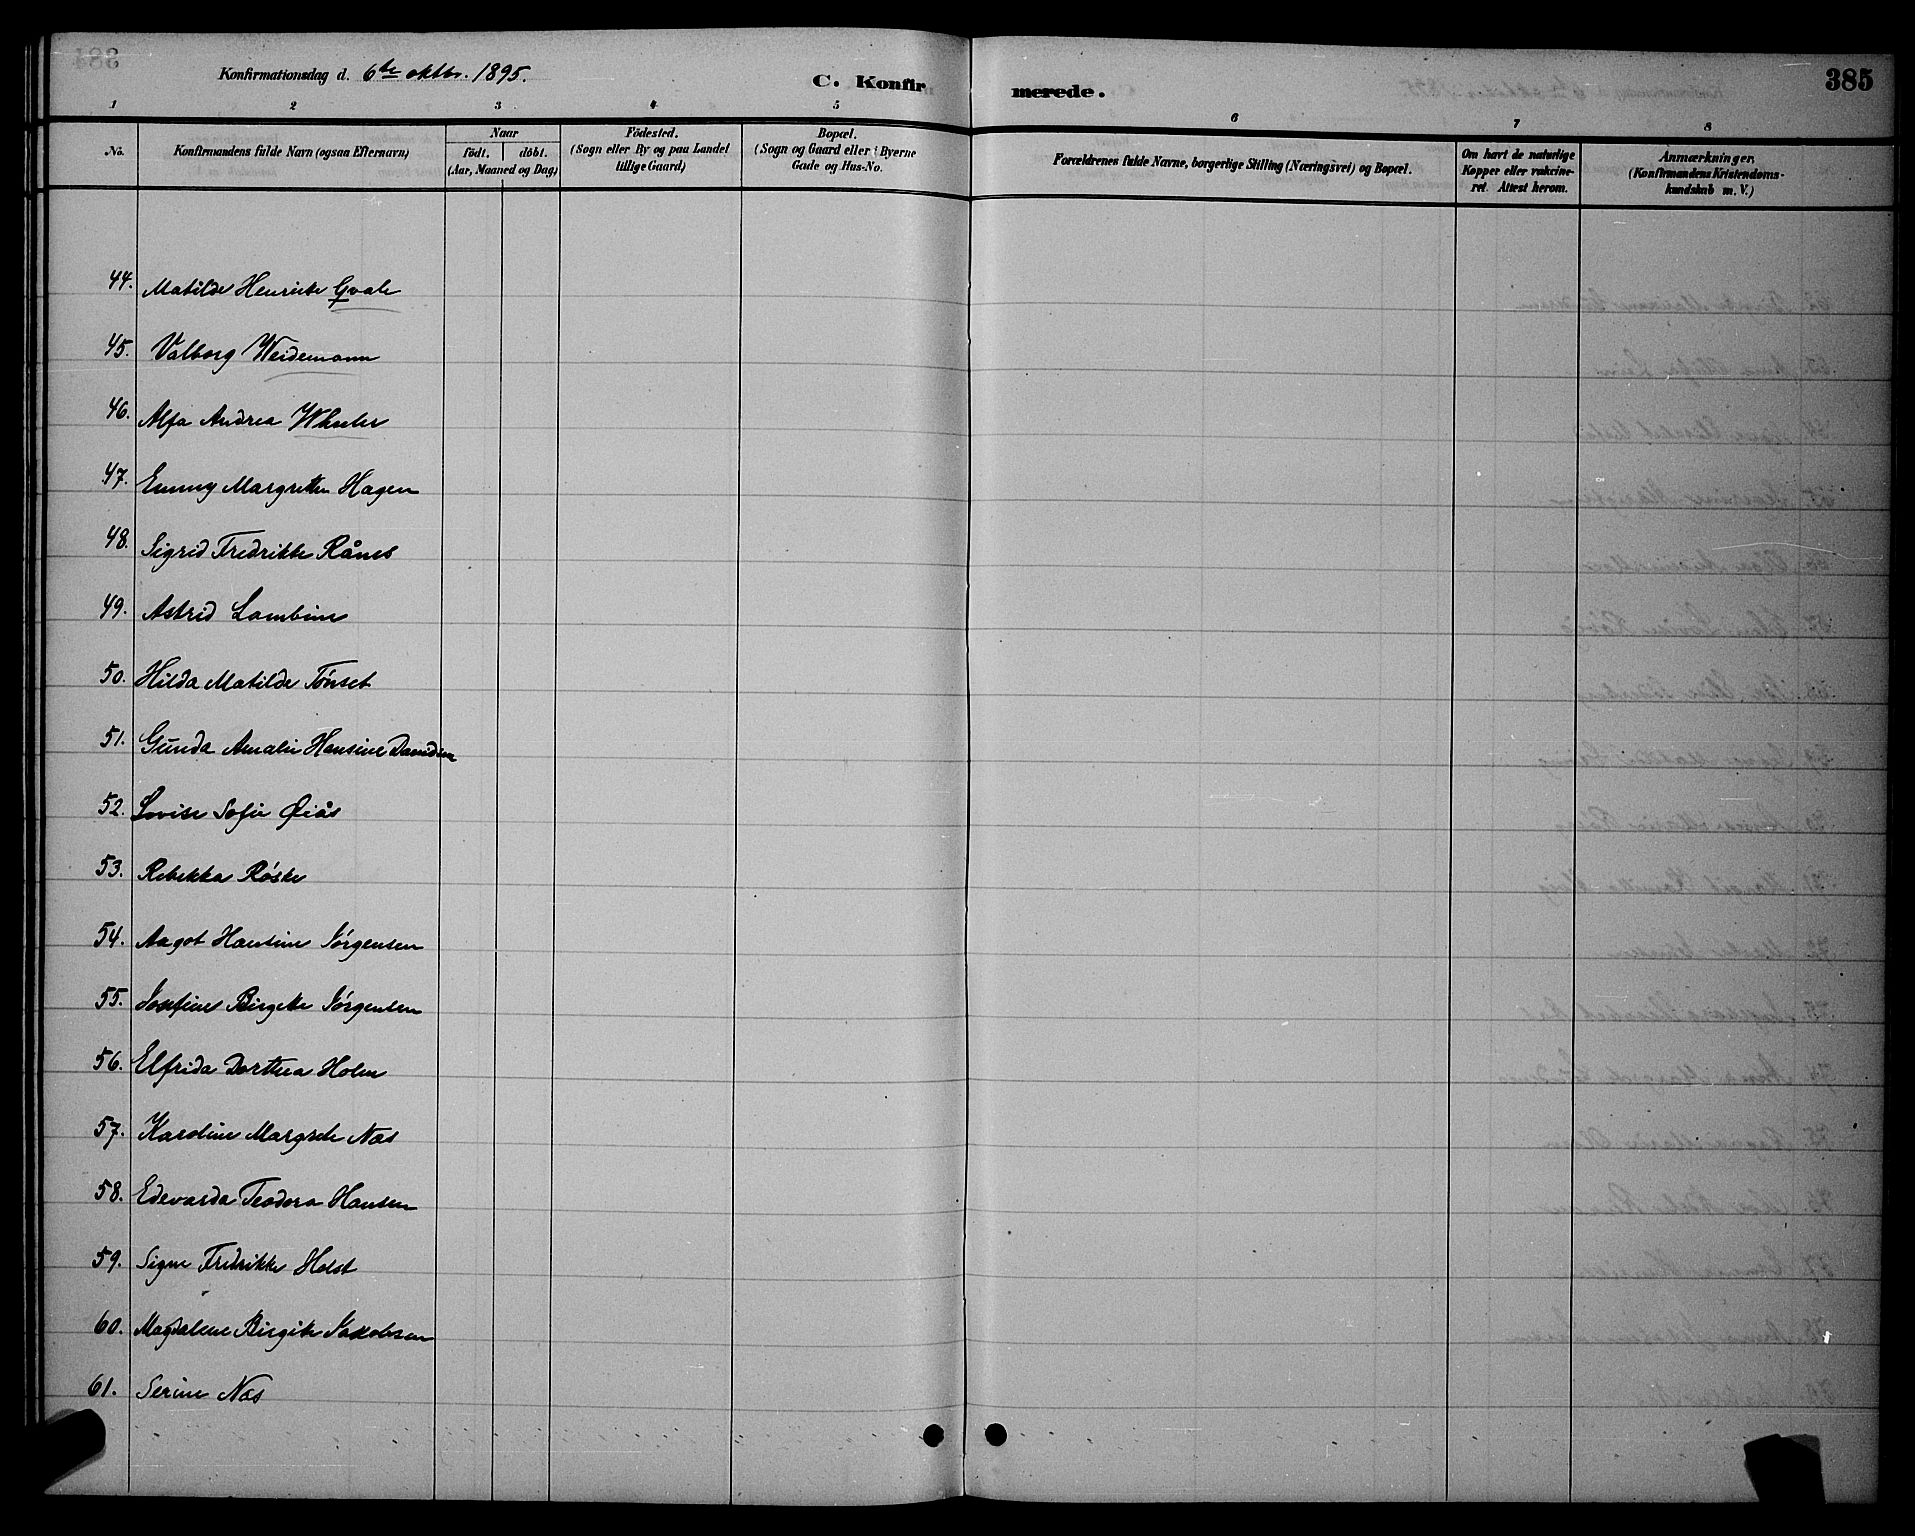 Konfirmationsdag d. 6te oktbr. 1895.
C. Konfirmerede.
385
1 2 3 4 5 6 7 8
No.
Konfirmandens fulde Navn (ogsaa Efternavn)
Naar
født. døbt.
(Aar, Maaned og Dag)
Fødested.
(Sogn eller By og paa Landet
tillige Gaard)
Bopæl.
(Sogn og Gaard eller i Byerne
Gade og Hus-No.
Forældrenes fulde Navne, borgerlige Stilling (Næringsvei) og Bopæl.
Om havt de naturlige
Kopper eller vakcine-
ret. Attest herom.
Anmærkninger.
(Konfirmandens Kristendoms-
kundskab m. V.)
44. Matilde Henrikke Qvale
45. Valborg Weidemann
46. Alfa Andrea Wheeler
47. Emmy Margrethe Hagen
48. Sigrid Fredrikke Rånes
49. Astrid Lambine
50. Hilda Matilde Tønset
51. Gunda Amalie Hansine Davidsen
52. Lovise Sofie Øiås
53. Rebekka Røske
54. Aagot Hansine Jørgensen
55. Josefine Birgitte Jørgensen
56. Elfrida Dorthea Holm
57. Karoline Margrete Næs
58. Edevarda Teodora Hansen
59. Signe Fredrikke Holst
60. Magdalene Birgitte Jakobsen
61. Serine Næs